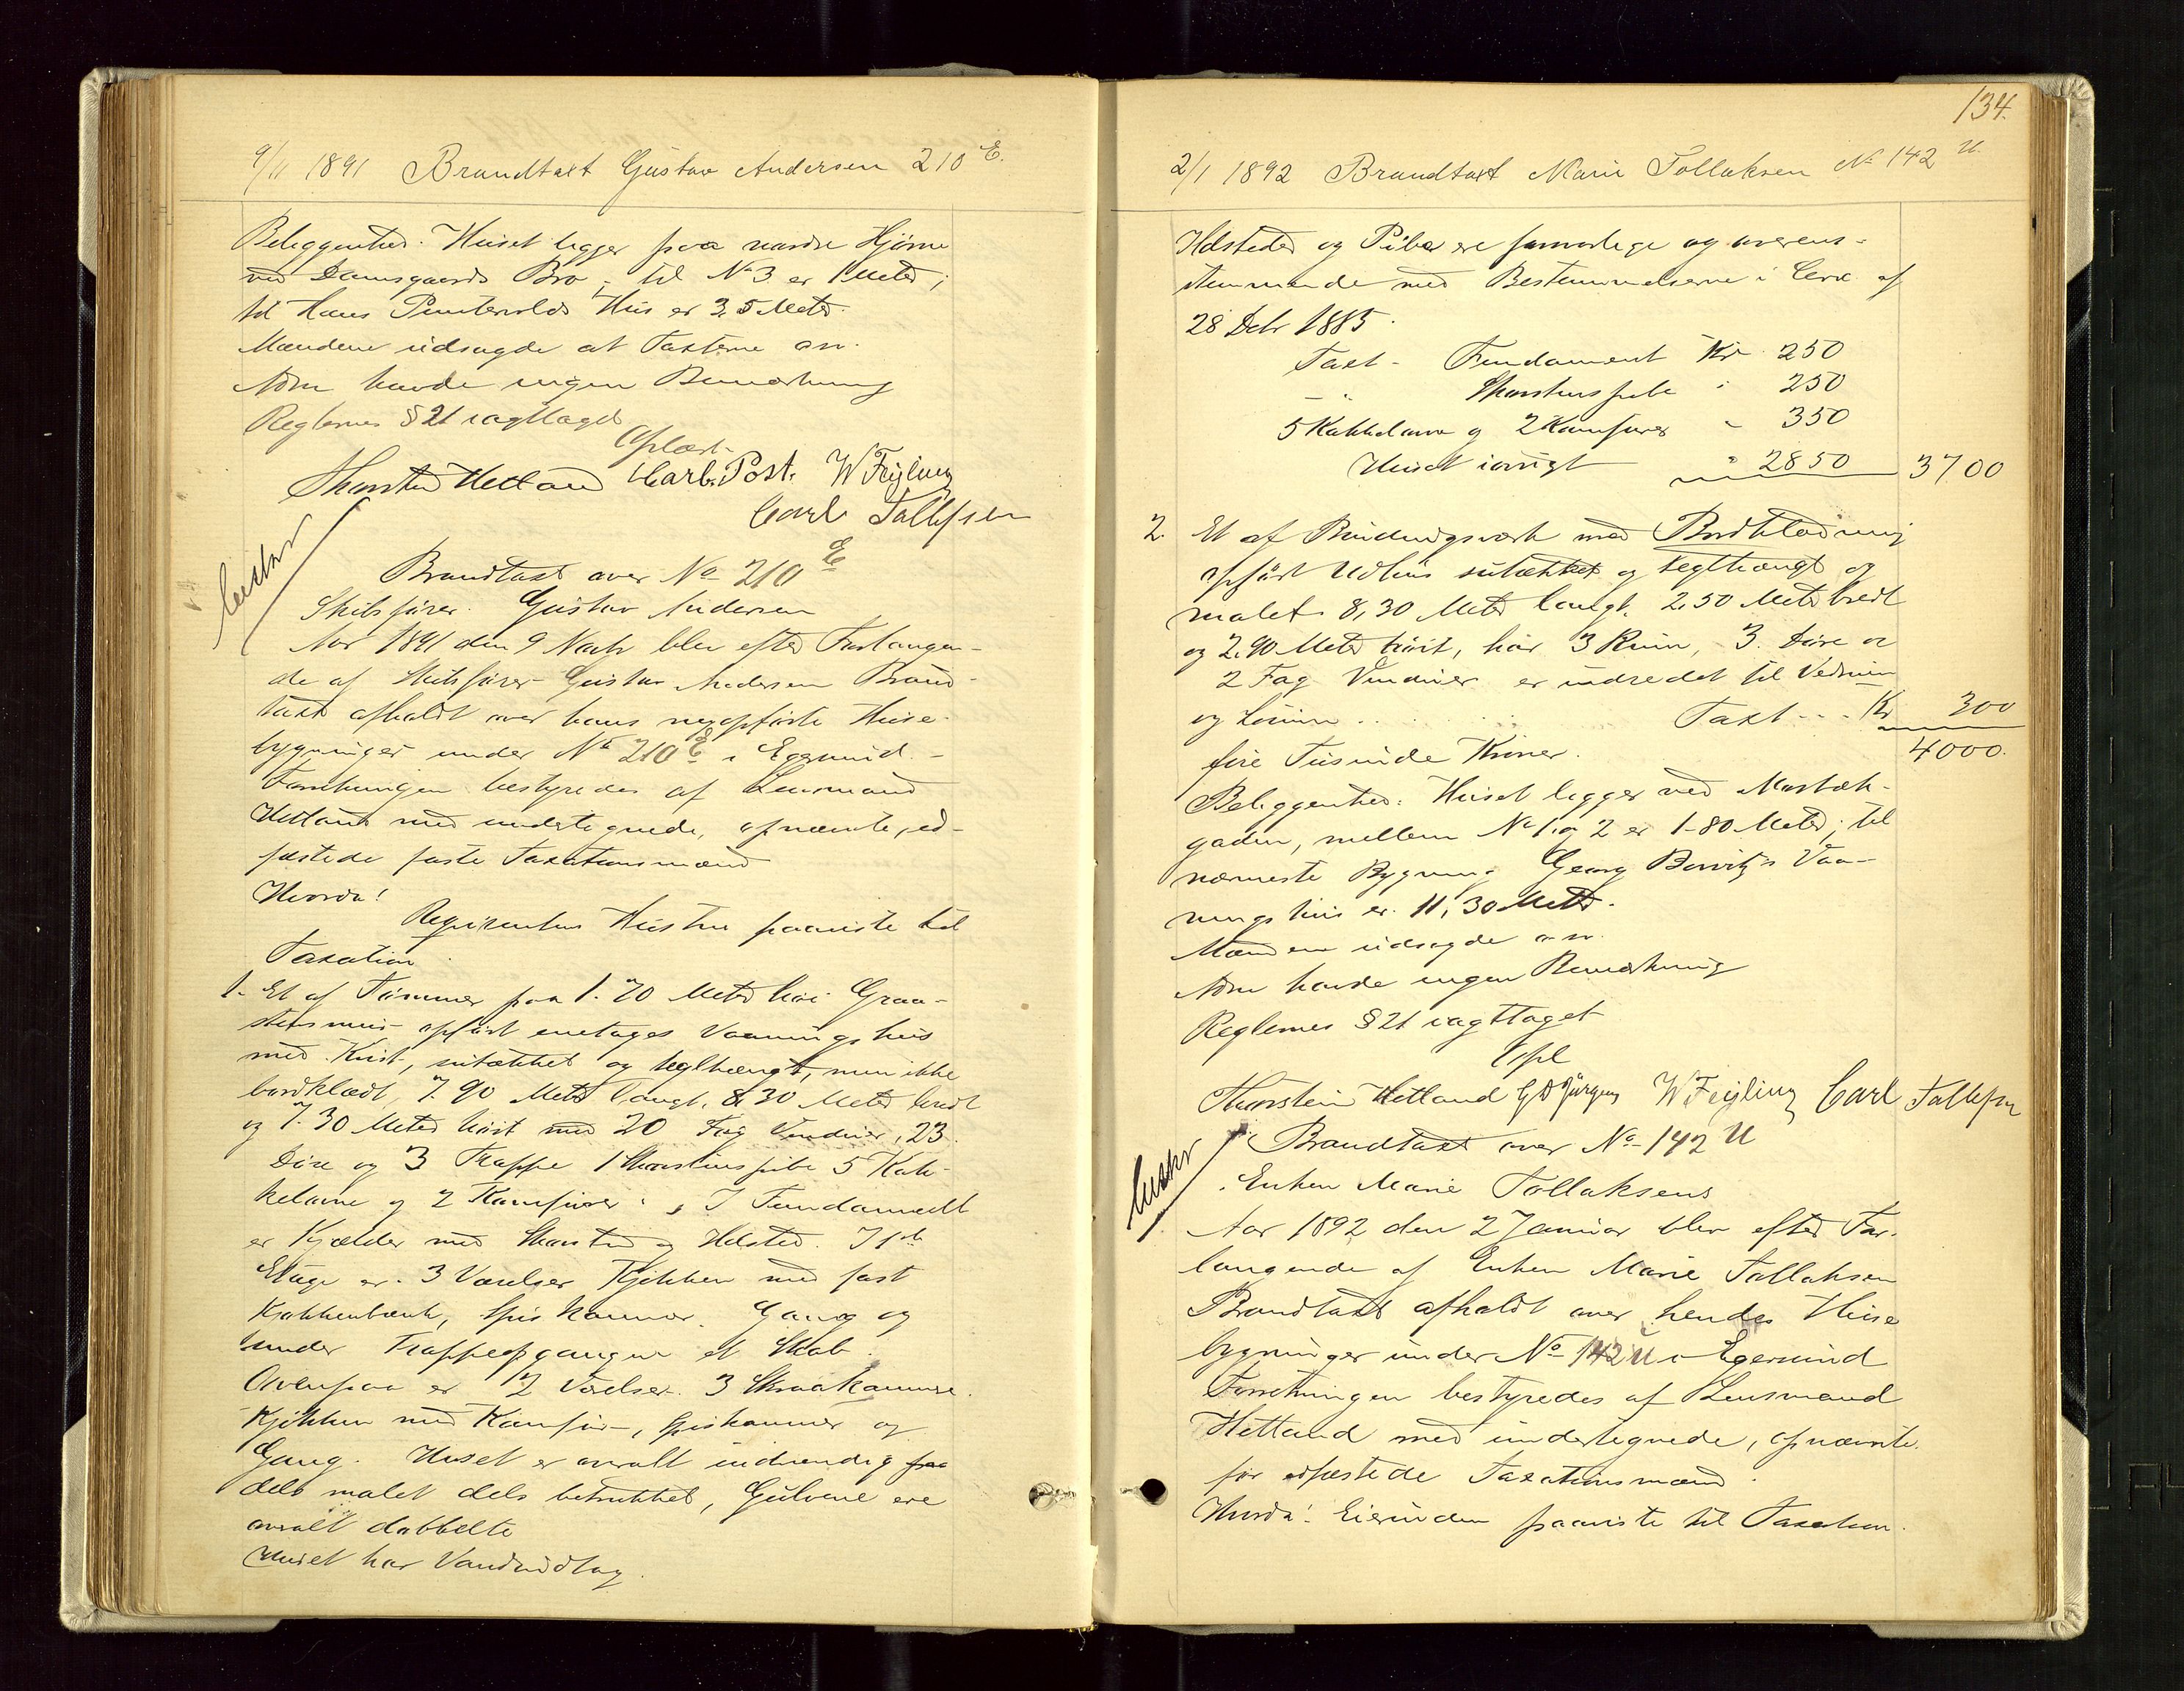 9/11 1891 Brandtaxt Gustav Andersen 210 E.
Beliggenhed. Huset ligger paa nordre Hjørne
ved Damsgaards Bro; til No 3 er 1 Meter;
til Hans Hus er 3,5 Meter.
Mændene udsagde at Taxterne osv.
Adm havde ingen Bemærkning
Reglernes § 21 iagttaget
Oplæst
Thorstein Hetland Carl Post. W Feyling
Carl Tollefsen
Brandtaxt over No 210 E
Skibsfører Gustav Andersen
Aar 1891 den 9 Novbr blev efter Forlangen-
de af Skibsfører Gustav Andersen Brand-
taxt afholdt over hans nyopførte Huse-
bygninger under No 210 E i Egersund.-
Forretningen bestyredes af Lensmand
Hetland med undertegnede, opnævnte, ed-
fæstede faste Taxationsmænd
Hvorda!
Reqvirentens Hustru paaviste til
Taxation.
1. Et af Tømmer paa 1.70 Meter høi Graa-
stensmur opført enetages Vaaningshus
med Kvist, sutækket og teglhængt, men ikke
bordklædt, 7.90 Meter langt, 8,30 Meter bredt
og 7.30 Meter høit med 20 Fag Vinduer, 23
Døre og 3 Trappe 1 Skorstenspibe 5 Kak-
kelovne og 2 Komfurer. I Fundamentet
er Kjælder med Skorsten og Ildsted. I 1ste
Etage er 3 Værelser Kjøkken med fast
Kjøkkenbænk, Spiskammer, Gang og
under Trappeopgangen et Skab.
Ovenpaa er 2 Værelser. 3 Skraakammere.
Kjøkken med Komfur, Spiskammer og
Gang. Huset er overalt indvendig paa
dels malet dels betrukket, Gulvene ere
overalt dobbelte
Huset har Vandindlag.
134.
2/1 1892 Brandtaxt Marie Tollaksen No 142 U.
Ildsteder og Piber ere forsvarlige og overens-
stemmende med Bestemmelserne i af
28 Debr 1885.
Taxt - Fundament Kr. 250
- " Skorstenspibe " 250
5 Kakkelovne og 2 Komfurer " 350
Huset iøvrigt " 2850 3700
2. Et af Bindingsværk med Bordklædning
opført Udhus sutækket og teglhængt og
malet 8,30 Meter langt, 2,50 Meter bredt
og 2,90 Meter høit, har 3 Rum, 3 Døre og
2 Fag Vinduer er indredet til Vedrum
og Taxt - - - Kr 300
fire Tusinde Kroner. 4000.
Beliggenhed: Huset ligger ved
gaden, mellem No 1 og 2 er 1.80 Meter; til
nærmeste Bygning Georg Vaa-
ningshus er 11,30 Meter.
Mændene udsagde osv.
Adm havde ingen Bemærkning
Reglernes § 21 iagttaget
Opl
Thorstein Hetland W Feyling Carl Tollefsen
Brandtaxt over No 142 U
Enken Marie Tollaksens
Aar 1892 den 2 Januar blev efter For-
langende af Enken Marie Tollaksen
Brandtaxt afholdt over hendes Huse
bygninger under No 142 U i Egersund
Forretningen bestyredes af Lensmand
Hetland med undertegnede, opnævnte
før edfæstede Taxationsmænd.
Hvorda! Eierinden paaviste til Taxation.